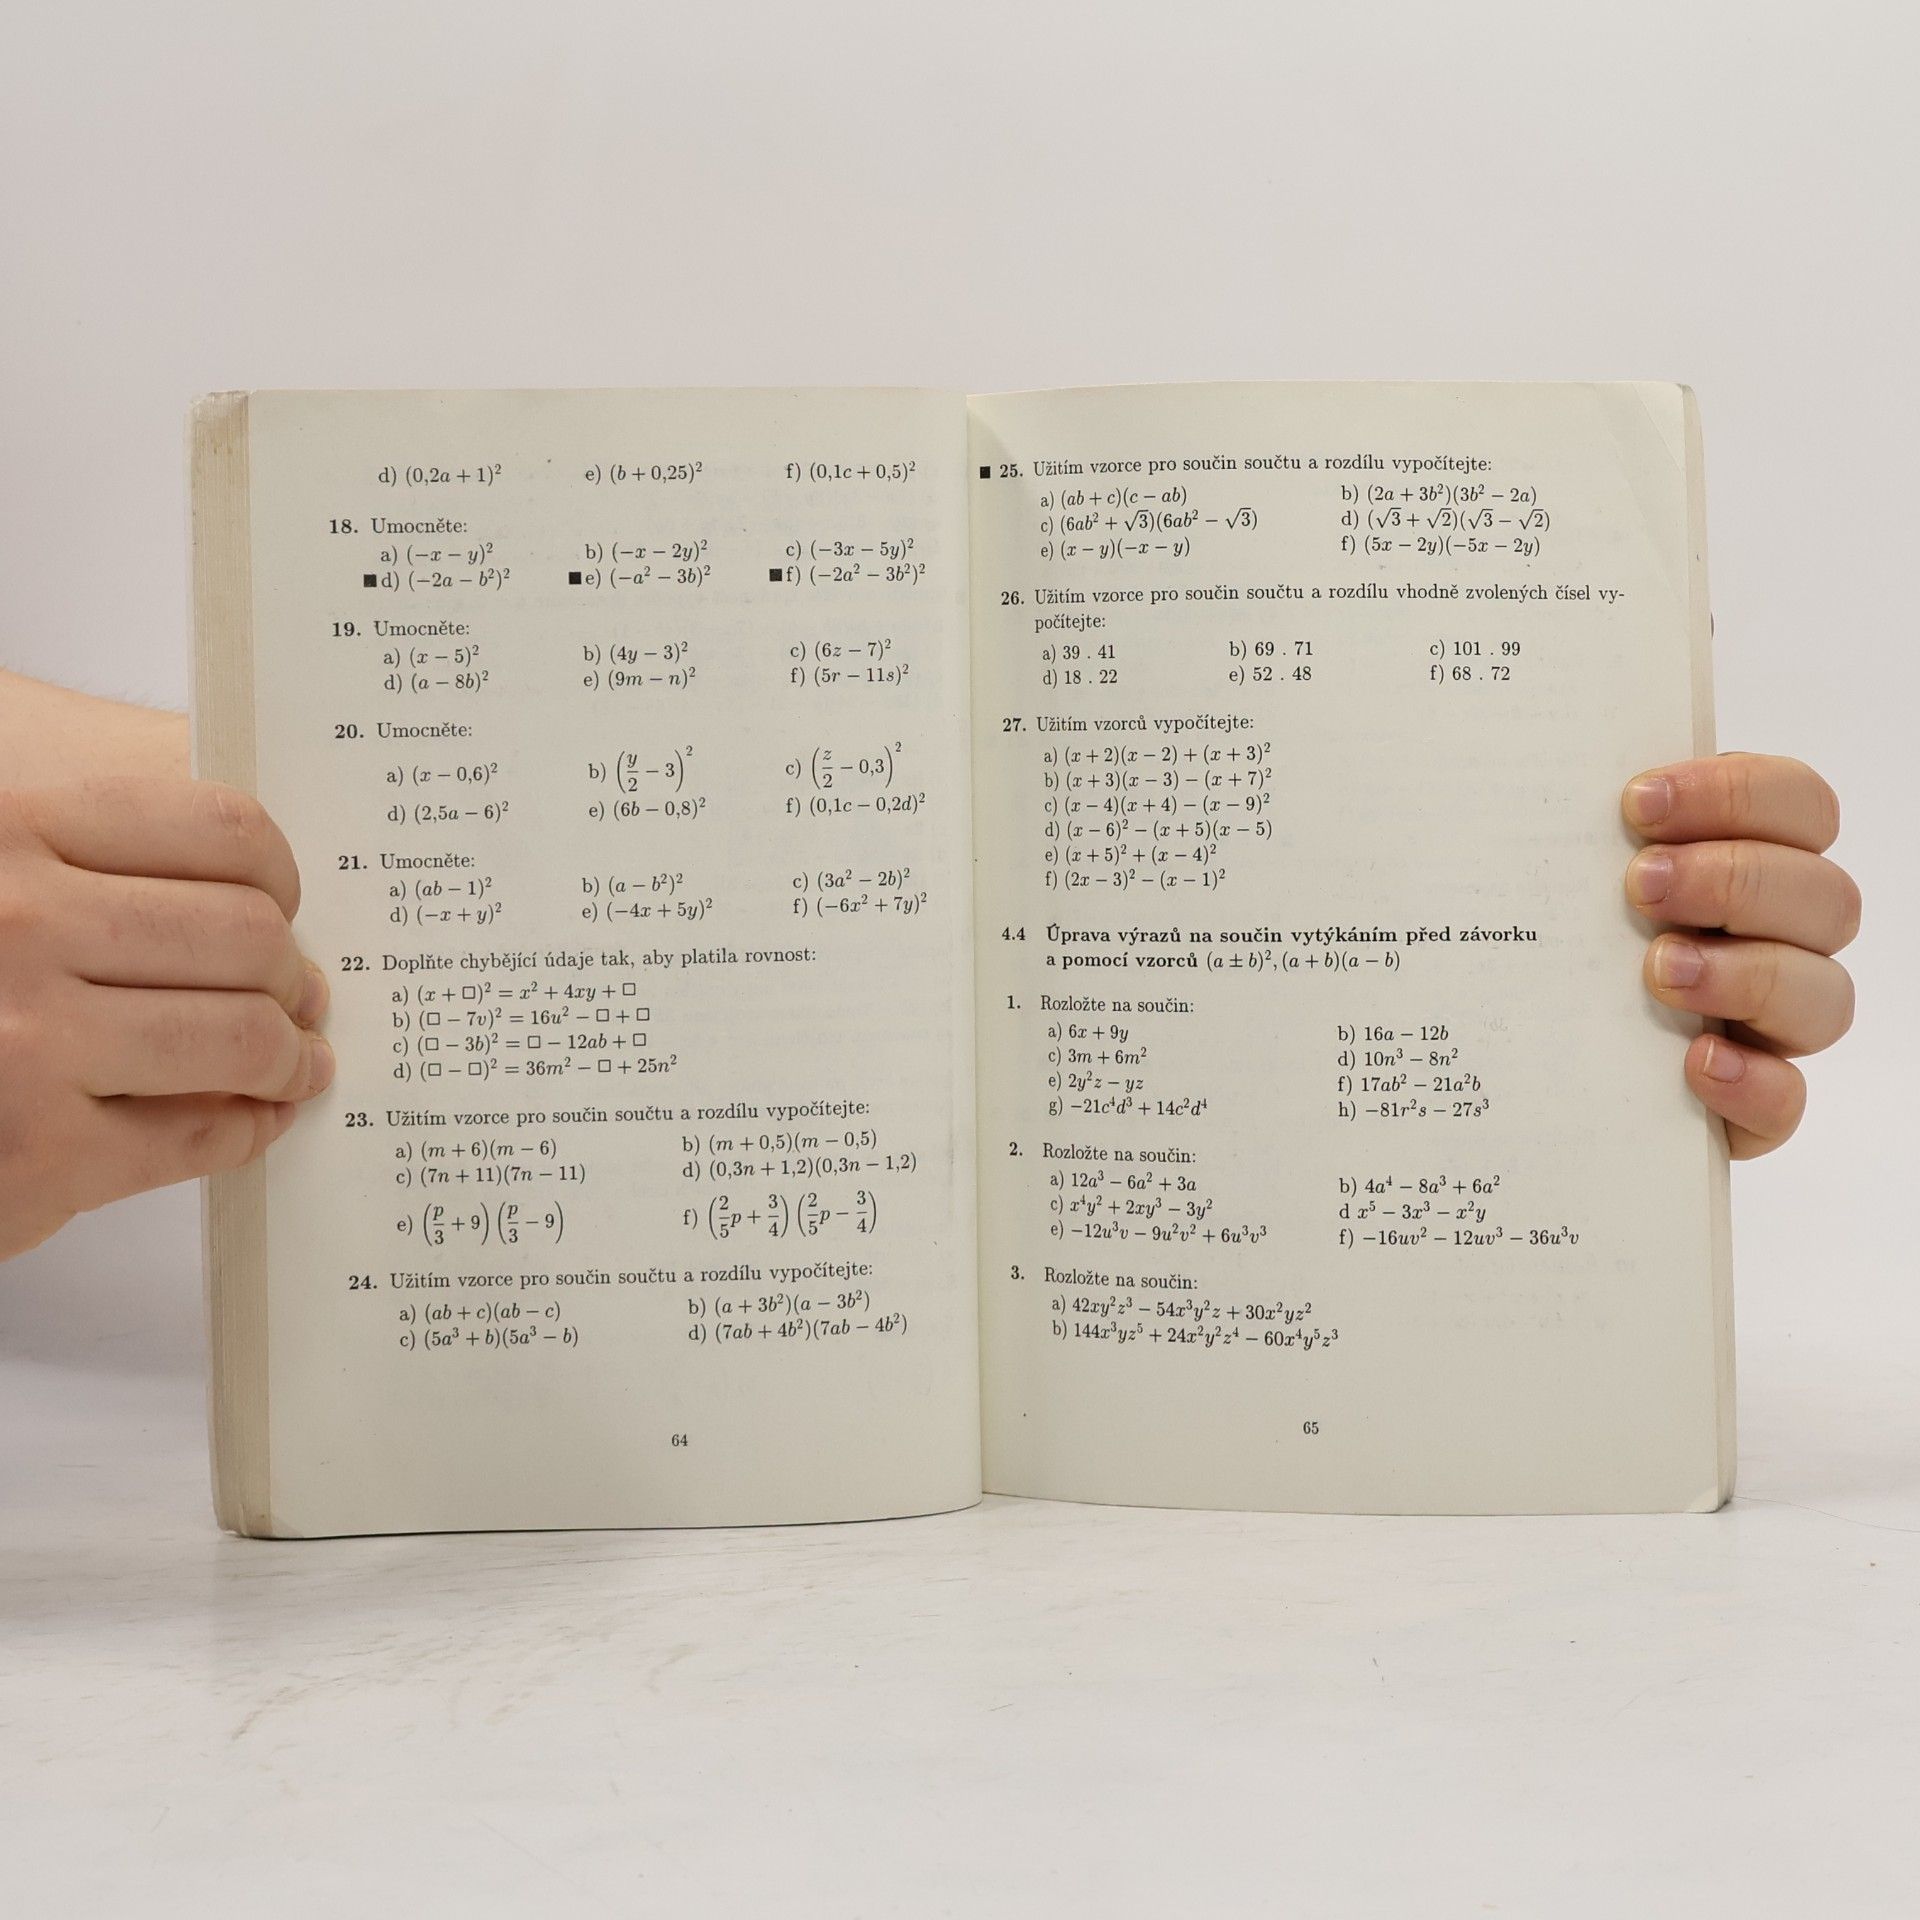 d) (0,2a + 1)² e) (b + 0,25)² f) (0,1c + 0,5)²
18. Umocněte:
a) (−x − y)² b) (−x − 2y)² c) (−3x − 5y)²
■ d) (−2a − b²)² ■ e) (−a² − 3b)² ■ f) (−2a² − 3b²)²
19. Umocněte:
a) (x − 5)² b) (4y − 3)² c) (6z − 7)²
d) (a − 8b)² e) (9m − n)² f) (5r − 11s)²
20. Umocněte:
a) (x − 0,6)² b) (y/2 − 3)² c) (z/2 − 0,3)²
d) (2,5a − 6)² e) (6b − 0,8)² f) (0,1c − 0,2d)²
21. Umocněte:
a) (ab − 1)² b) (a − b²)² c) (3a² − 2b)²
d) (−x + y)² e) (−4x + 5y)² f) (−6x² + 7y)²
22. Doplňte chybějící údaje tak, aby platila rovnost:
a) (x + □)² = x² + 4xy + □
b) (□ − 7v)² = 16u² − □ + □
c) (□ − 3b)² = □ − 12ab + □
d) (□ − □)² = 36m² − □ + 25n²
23. Užitím vzorce pro součin součtu a rozdílu vypočítejte:
a) (m + 6)(m − 6) b) (m + 0,5)(m − 0,5)
c) (7n + 11)(7n − 11) d) (0,3n + 1,2)(0,3n − 1,2)
e) (p/3 + 9)(p/3 − 9) f) (2/5p + 3/4)(2/5p − 3/4)
24. Užitím vzorce pro součin součtu a rozdílu vypočítejte:
a) (ab + c)(ab − c) b) (a + 3b²)(a − 3b²)
c) (5a³ + b)(5a³ − b) d) (7ab + 4b²)(7ab − 4b²)
64
■ 25. Užitím vzorce pro součin součtu a rozdílu vypočítejte:
a) (ab + c)(c − ab) b) (2a + 3b²)(3b² − 2a)
c) (6ab² + √3)(6ab² − √3) d) (√3 + √2)(√3 − √2)
e) (x − y)(−x − y) f) (5x − 2y)(−5x − 2y)
26. Užitím vzorce pro součin součtu a rozdílu vhodně zvolených čísel vy-
počítejte:
a) 39 . 41 b) 69 . 71 c) 101 . 99
d) 18 . 22 e) 52 . 48 f) 68 . 72
27. Užitím vzorců vypočítejte:
a) (x + 2)(x − 2) + (x + 3)²
b) (x + 3)(x − 3) − (x + 7)²
c) (x − 4)(x + 4) − (x − 9)²
d) (x − 6)² − (x + 5)(x − 5)
e) (x + 5)² + (x − 4)²
f) (2x − 3)² − (x − 1)²
4.4 Úprava výrazů na součin vytýkáním před závorku
a pomocí vzorců (a ± b)², (a + b)(a − b)
1. Rozložte na součin:
a) 6x + 9y b) 16a − 12b
c) 3m + 6m² d) 10n³ − 8n²
e) 2y²z − yz f) 17ab² − 21a²b
g) −21c⁴d³ + 14c²d⁴ h) −81r²s − 27s³
2. Rozložte na součin:
a) 12a³ − 6a² + 3a b) 4a⁴ − 8a³ + 6a²
c) x⁴y² + 2xy³ − 3y² d x⁵ − 3x³ − x²y
e) −12u³v − 9u²v² + 6u³v³ f) −16uv² − 12uv³ − 36u³v
3. Rozložte na součin:
a) 42xy²z³ − 54x³y²z + 30x²yz²
b) 144x³yz⁵ + 24x²y²z⁴ − 60x⁴y⁵z³
65